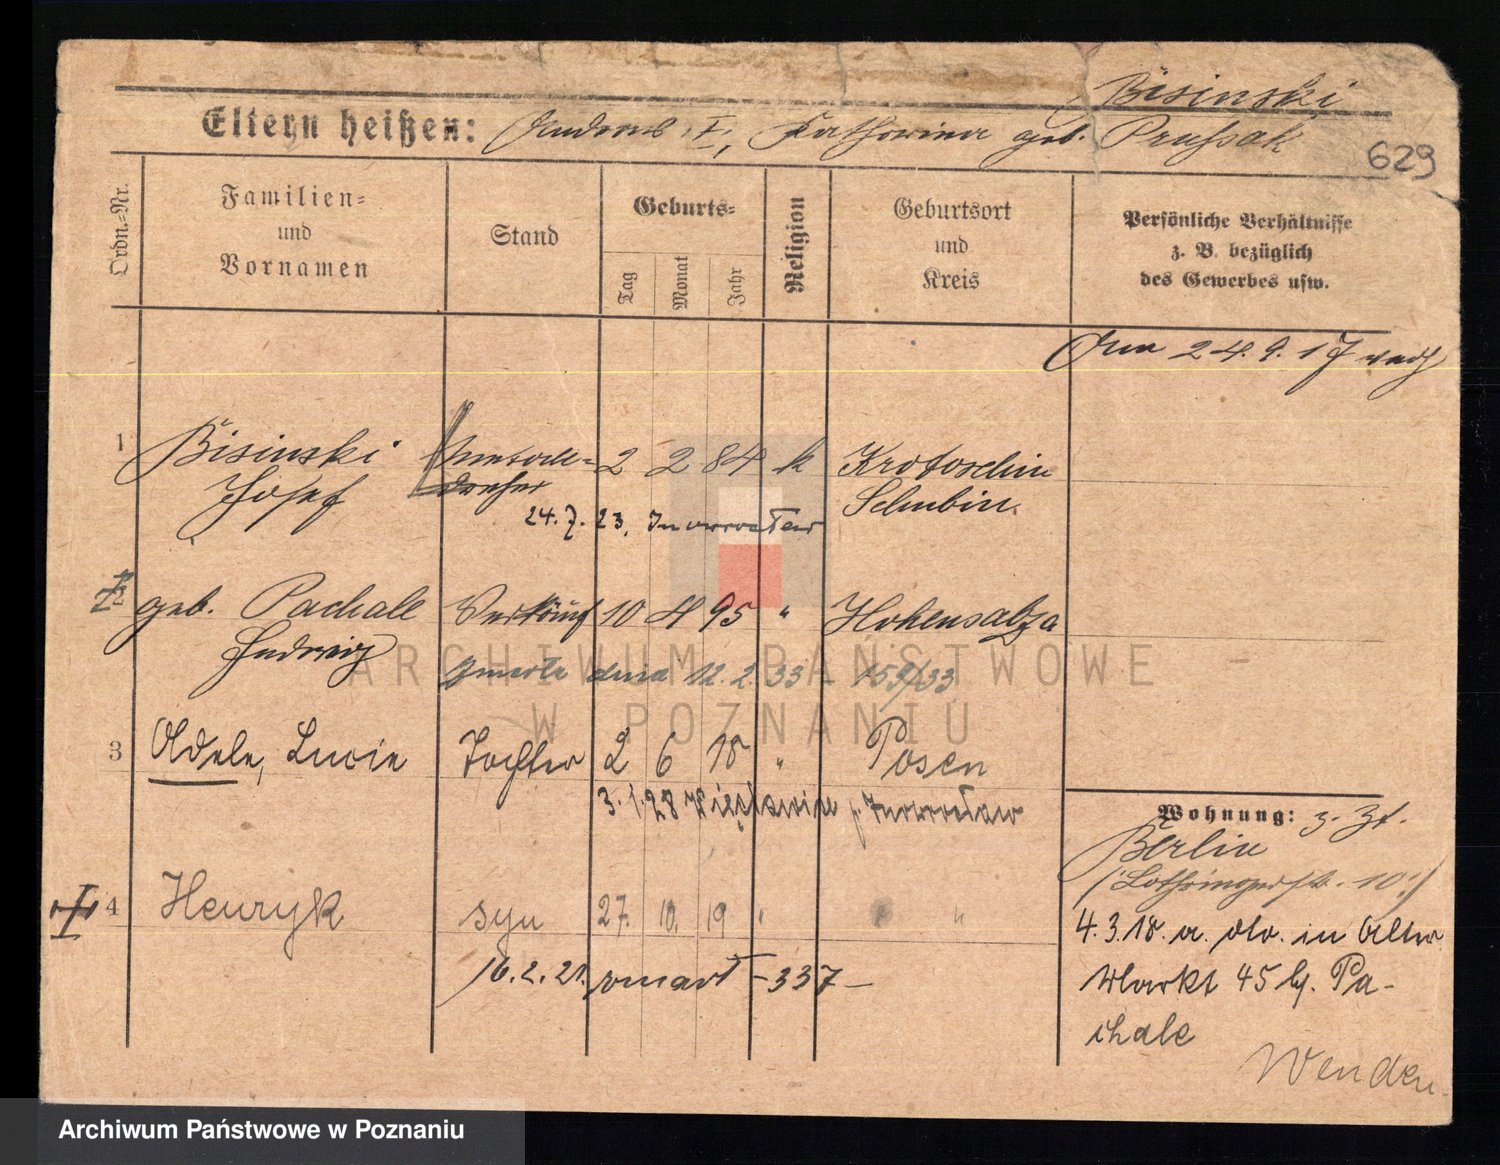 Bisinski
Eltern heißen: Andreas †, Katharina geb. Prussak
629
Ordn.=Nr.
Familien=
und
Vornamen
Stand
Geburts=
Tag
Monat
Jahr
Religion
Geburtsort
und
Kreis
Persönliche Verhältnisse
z. B. bezüglich
des Gewerbes usw.
24. 9. 17
1 Bisinski 2 2 84 k Krotoschin
Josef dreher Schubin.
24. 7. 23, Inowrocław
2 geb. Pachale Verkäuf 10 4 95 " Hohensalza
Hedwig
Zmarła dnia 12. 2. 33 159/33
3 Adele, Lucie Tochter 2 6 18 " Posen
3. 1. 28 p. Inowrocław
Wohnung: z. Zt.
Berlin
(Lothringerstr. 10.)
4 Henryk syn 27. 10. 19 " "
4. 3. 18. a. in Alter
16. 2. 21. zmarł - 337 -
Markt 45 b/. Pa-
chale
Wenden.
ARCHIWUM PAŃSTWOWE
W POZNANIU
Archiwum Państwowe w Poznaniu